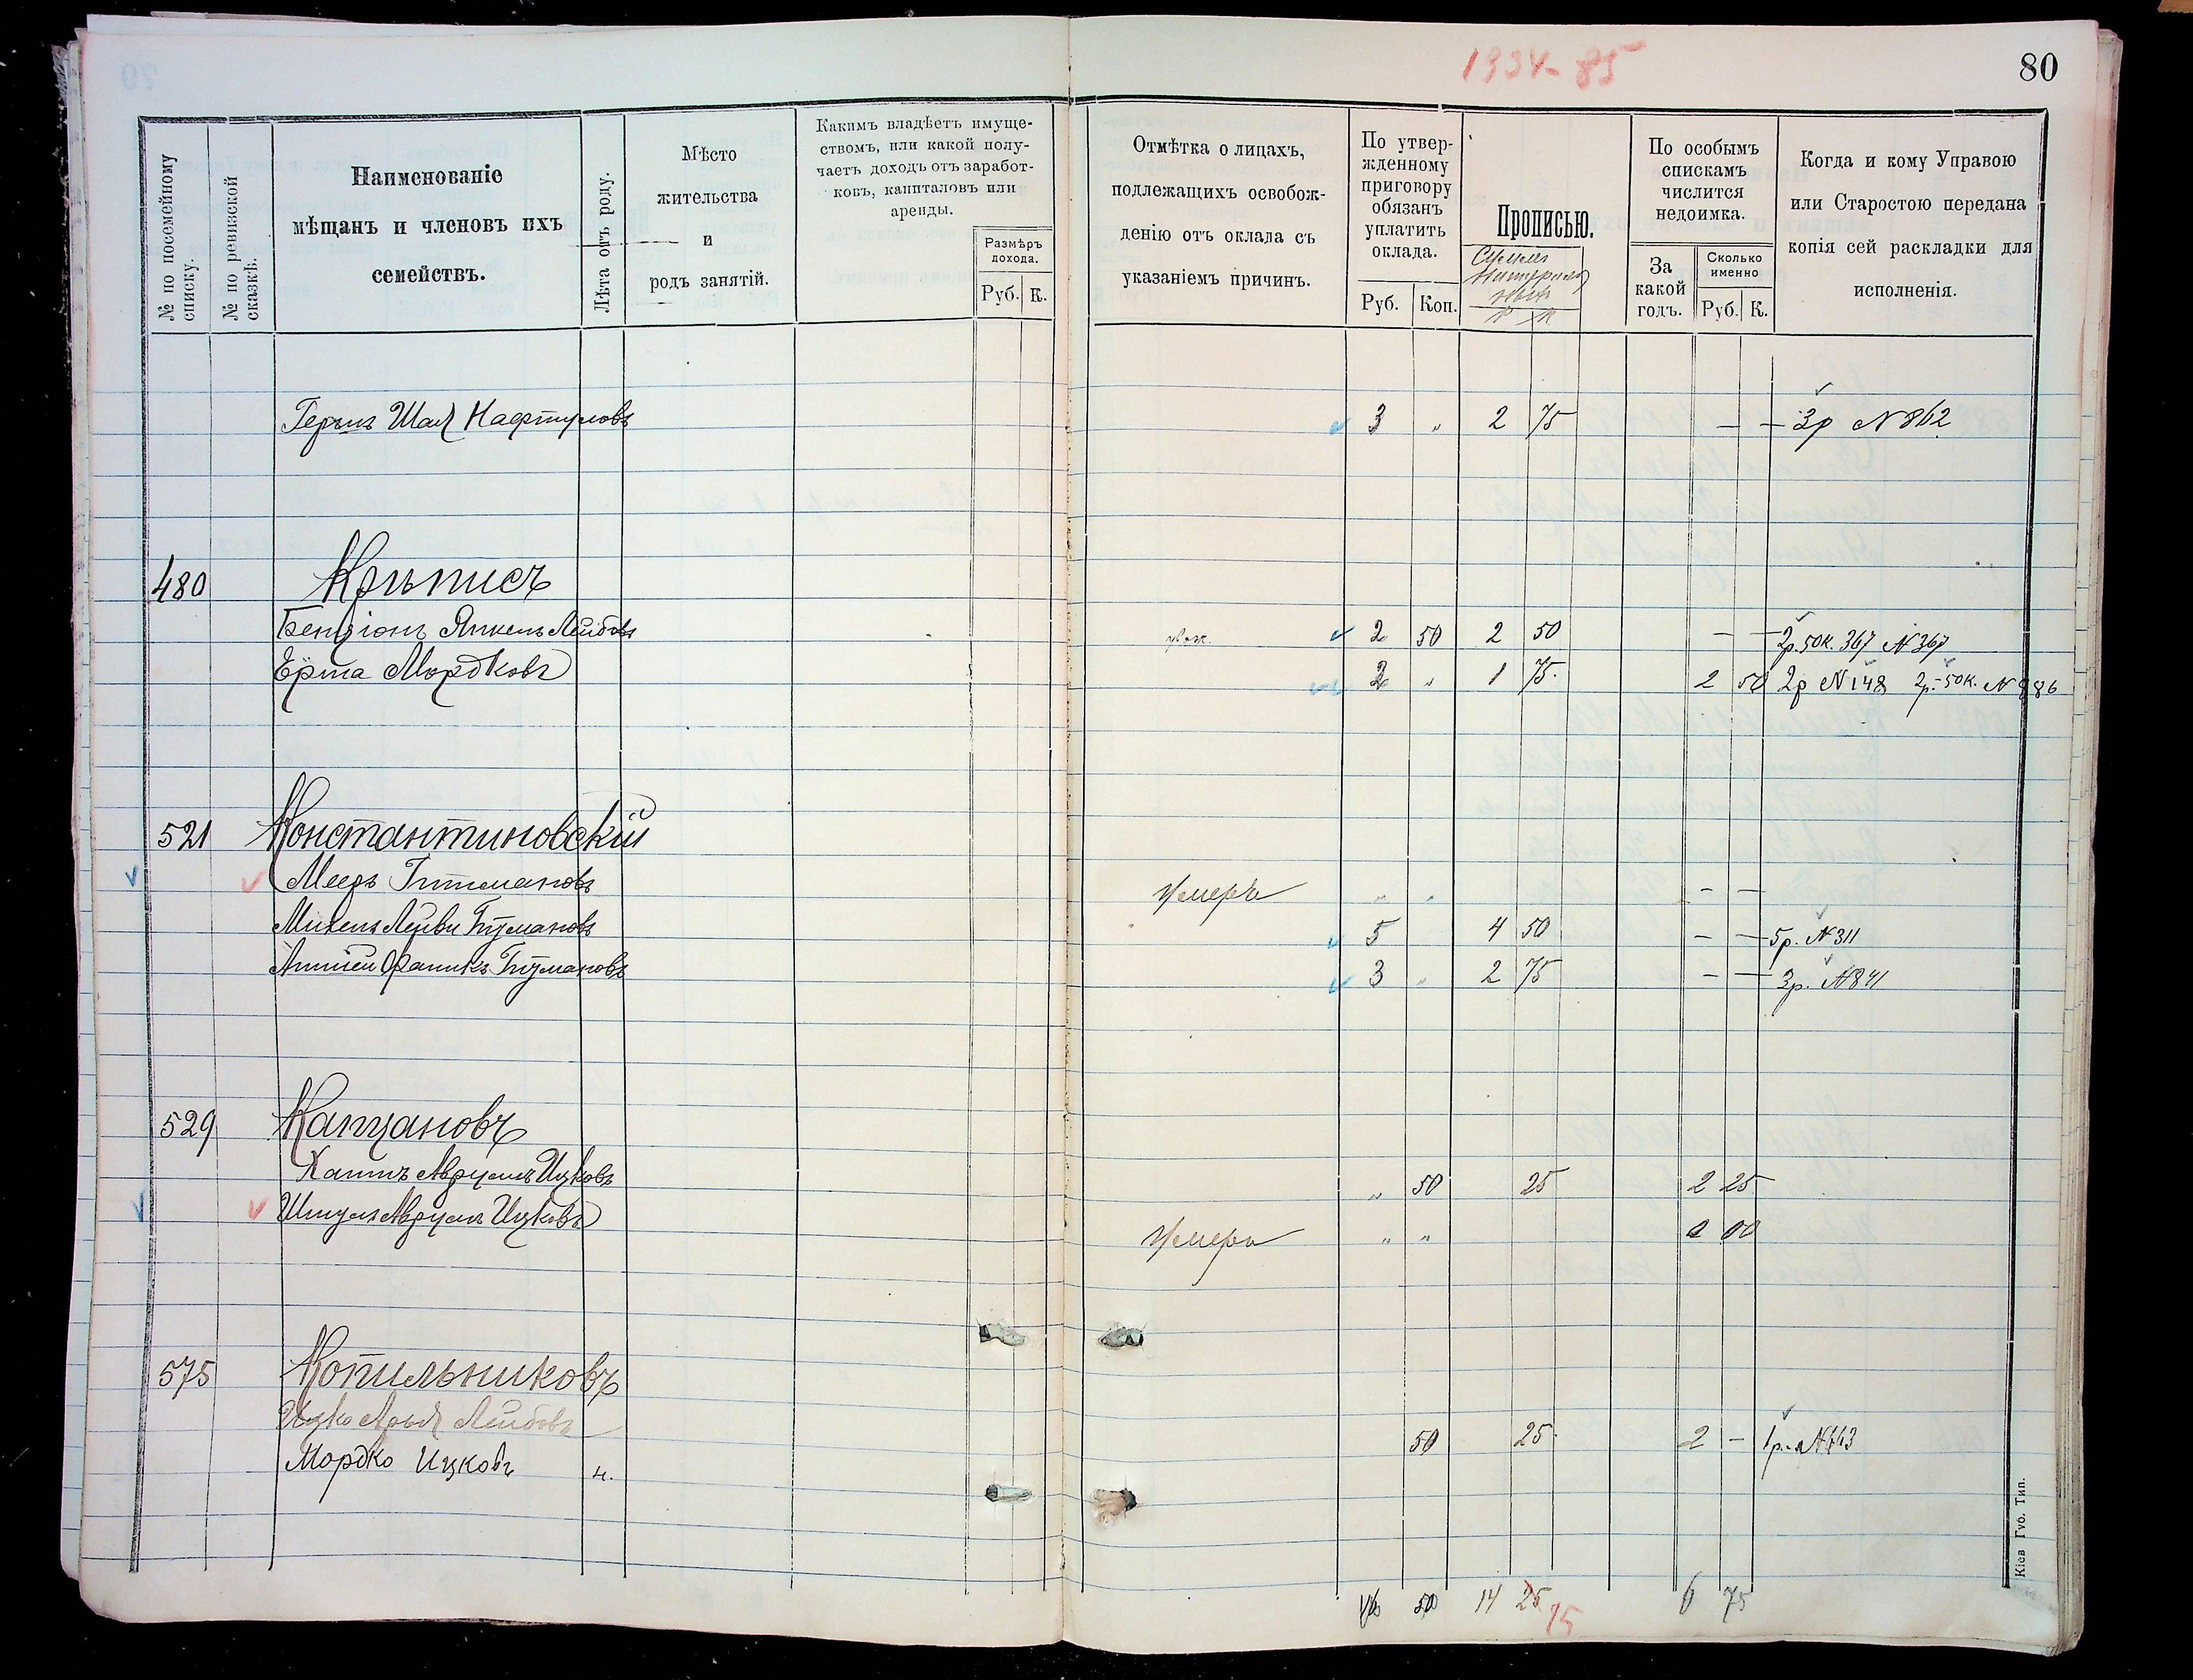 80
№ по посемейному списку.
№ по ревизской сказкѣ.
Наименованіе
мѣщанъ и членовъ ихъ
семействъ.
Лѣта отъ роду.
Мѣсто
жительства
и
родъ занятій.
Какимъ владѣетъ имуще-
ствомъ, или какой полу-
чаетъ доходъ отъ заработ-
ковъ, капиталовъ или
аренды.
Размѣръ
дохода.
Руб. К.
Отмѣтка о лицахъ,
подлежащихъ освобож-
денію отъ оклада съ
указаніемъ причинъ.
По утвер-
жденному
приговору
обязанъ
уплатить
оклада.
Руб. Коп.
Прописью.
По особымъ
спискамъ
числится
недоимка.
За
какой
годъ.
Сколько
именно
Руб. К.
Когда и кому Управою
или Старостою передана
копія сей раскладки для
исполненія.
Гершъ Шая Нафтуловъ 3 " 2 75 — — 3р N 862
480
Бенціонъ Янкель Лейбовъ 2 50 2 50 — — 2р. 50к. 367 N 367
Мордковъ 2 " 1 75 2 50 2р N 148 2р. 50к. N 886
521 Константиновскій
Мееръ Гитмановъ Умеръ " " — —
5 4 50 — — 5р. N 311
3 " 2 75 — — 3р. N 841
529 Капцановъ
Хаимъ Аврумъ Ицковъ " 50 25 2 25
Шмулъ Аврумъ Ицковъ Умеръ " "
575 Копильниковъ
Ицко Арья Лейбовъ 50 25 2 — 1р.
Мордко Ицковъ н.
16 50 14 25 75 6 75
Кіев Губ. Тип.